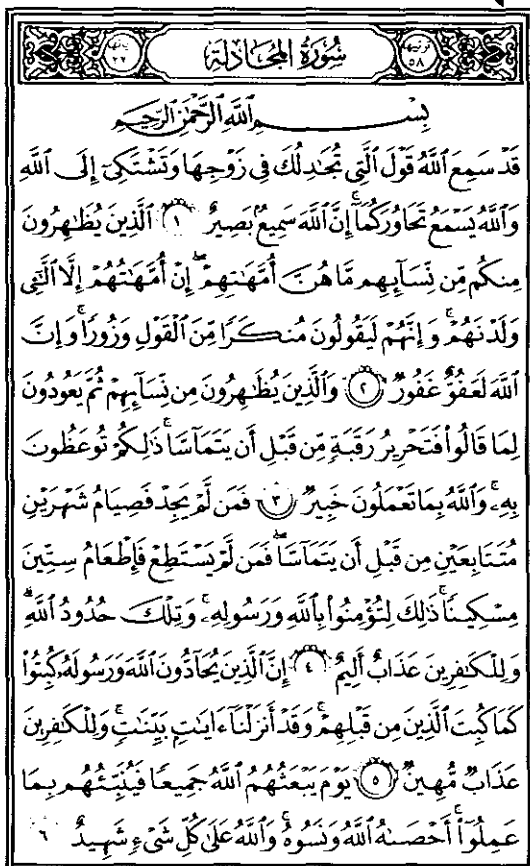 ترتيبها ٥٨ سُورَةُ المُجَادلة آياتها ٢٢
بِسْمِ اللَّهِ الرَّحْمَٰنِ الرَّحِيمِ
قَدْ سَمِعَ اللَّهُ قَوْلَ الَّتِي تُجَادِلُكَ فِي زَوْجِهَا وَتَشْتَكِي إِلَى اللَّهِ
وَاللَّهُ يَسْمَعُ تَحَاوُرَكُمَا ۚ إِنَّ اللَّهَ سَمِيعٌ بَصِيرٌ ١ الَّذِينَ يُظَٰهِرُونَ
مِنكُم مِّن نِّسَآئِهِم مَّا هُنَّ أُمَّهَٰتِهِمْ ۖ إِنْ أُمَّهَٰتُهُمْ إِلَّا الَّٰٓـِٔي
وَلَدْنَهُمْ ۚ وَإِنَّهُمْ لَيَقُولُونَ مُنكَرًا مِّنَ الْقَوْلِ وَزُورًا ۚ وَإِنَّ
اللَّهَ لَعَفُوٌّ غَفُورٌ ٢ وَالَّذِينَ يُظَٰهِرُونَ مِن نِّسَآئِهِمْ ثُمَّ يَعُودُونَ
لِمَا قَالُوا۟ فَتَحْرِيرُ رَقَبَةٍ مِّن قَبْلِ أَن يَتَمَآسَّا ۚ ذَٰلِكُمْ تُوعَظُونَ
بِهِۦ ۚ وَاللَّهُ بِمَا تَعْمَلُونَ خَبِيرٌ ٣ فَمَن لَّمْ يَجِدْ فَصِيَامُ شَهْرَيْنِ
مُتَتَابِعَيْنِ مِن قَبْلِ أَن يَتَمَآسَّا ۖ فَمَن لَّمْ يَسْتَطِعْ فَإِطْعَامُ سِتِّينَ
مِسْكِينًا ۚ ذَٰلِكَ لِتُؤْمِنُوا۟ بِاللَّهِ وَرَسُولِهِۦ ۚ وَتِلْكَ حُدُودُ اللَّهِ ۗ
وَلِلْكَٰفِرِينَ عَذَابٌ أَلِيمٌ ٤ إِنَّ الَّذِينَ يُحَآدُّونَ اللَّهَ وَرَسُولَهُۥ كُبِتُوا۟
كَمَا كُبِتَ الَّذِينَ مِن قَبْلِهِمْ ۚ وَقَدْ أَنزَلْنَآ ءَايَٰتٍۭ بَيِّنَٰتٍ ۚ وَلِلْكَٰفِرِينَ
عَذَابٌ مُّهِينٌ ٥ يَوْمَ يَبْعَثُهُمُ اللَّهُ جَمِيعًا فَيُنَبِّئُهُم بِمَا
عَمِلُوٓا۟ ۚ أَحْصَىٰهُ اللَّهُ وَنَسُوهُ ۚ وَاللَّهُ عَلَىٰ كُلِّ شَىْءٍ شَهِيدٌ ٦